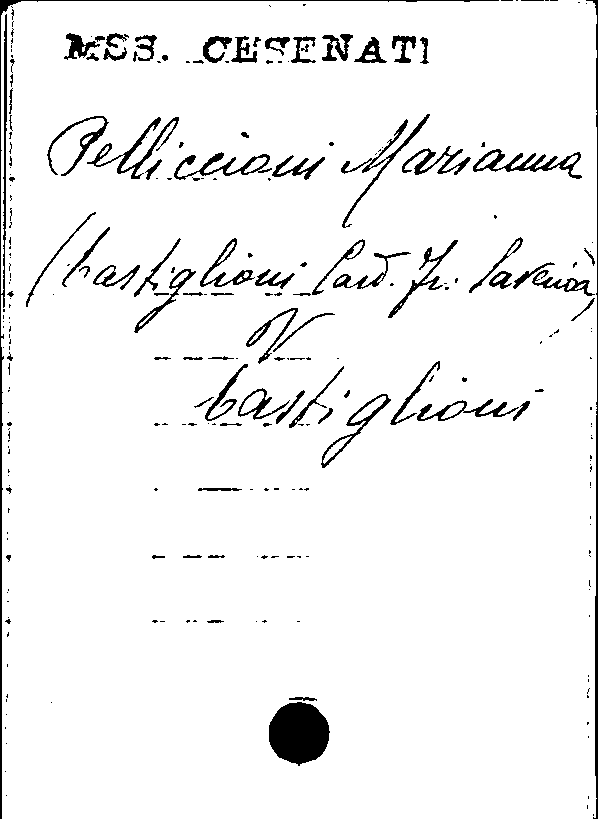 MSS. CESENATI
Pelliccioni Marianna
(Castiglioni Card. Fr. Saverio)
V
Castiglioni